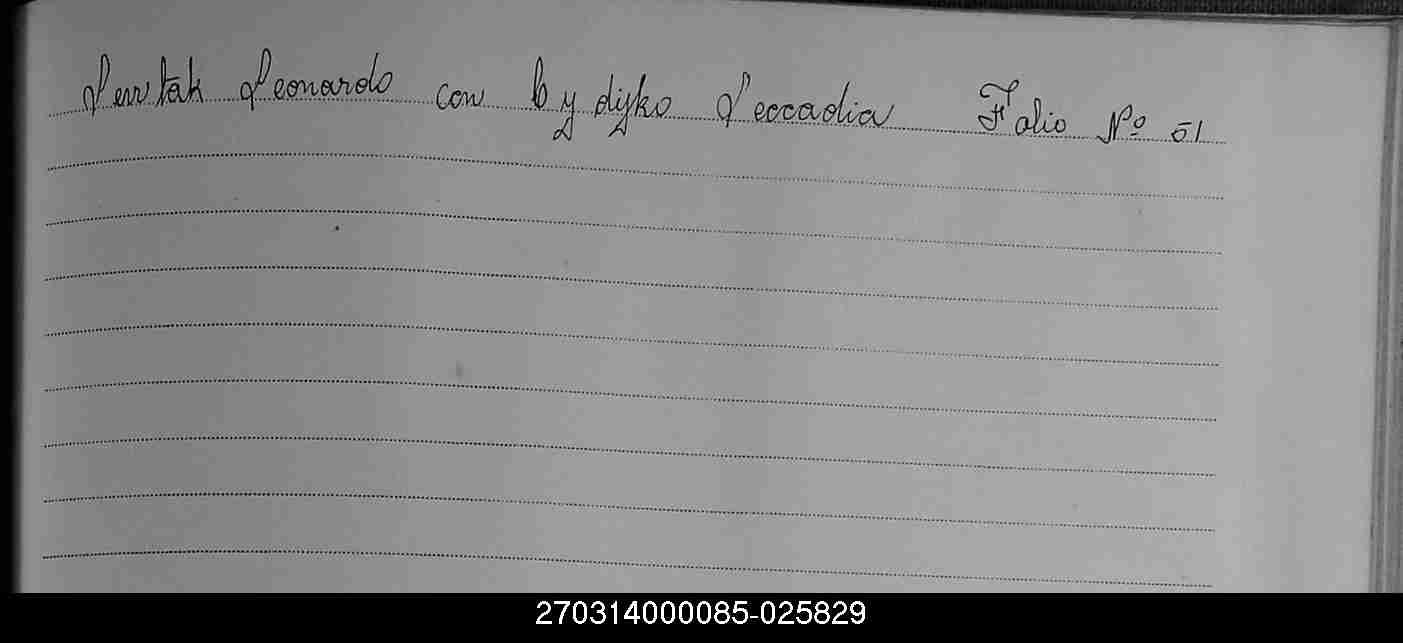 Lewtak Leonardo con Bydyko Leocadia Folio Nº 51
270314000085-025829